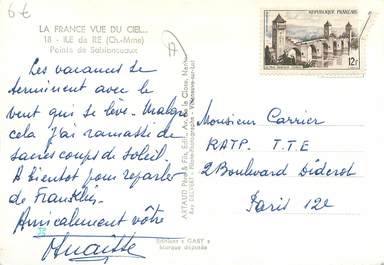 6€
LA FRANCE VUE DU CIEL...
18 - ILE de RE (Ch.-Mme)
Pointe de Sablonceaux
Les vacances se
terminent avec le
vent qui se lève. Malgré
cela j'ai ramassé de
sacrés coups de soleil.
A bientôt pour reparler
de Franklin.
Amicalement vôtre
Editions « GABY »
Marque déposée
ARTAUD Père & Fils, Edit., Av. de la Gloire, Nantes
Ray DELVERT - Pilote-Photographe - Villeneuve-sur-Lot
REPUBLIQUE FRANÇAISE
12F
Monsieur Carrier
RATP. T.T.E
2 Boulevard Diderot
Paris 12e